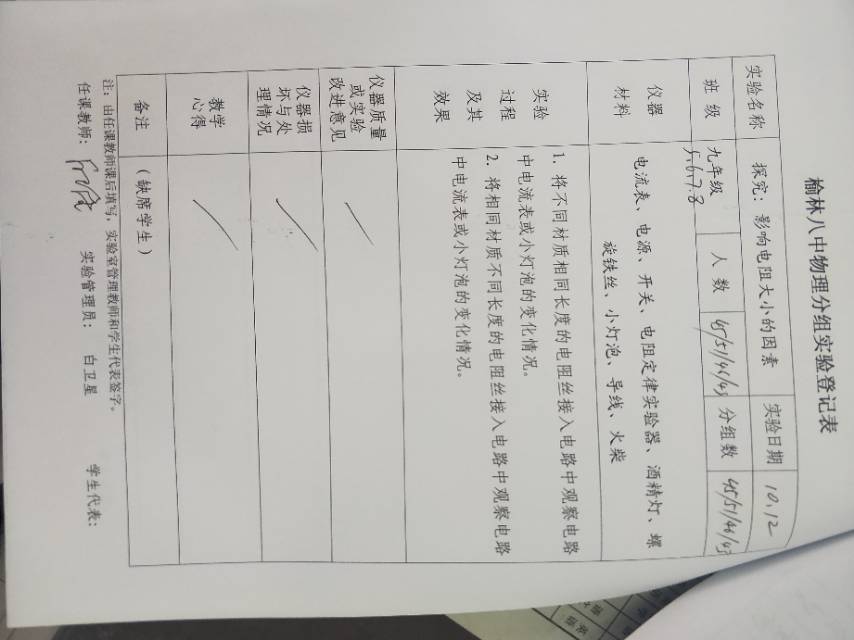 榆林八中物理分组实验登记表
实验名称 探究：影响电阻大小的因素 实验日期 10.12
班 级 九年级 5.6.7.8 人 数 45/51/46/43 分组数 45/51/46/43
仪器
材料
电流表、电源、开关、电阻定律实验器、酒精灯、螺
旋铁丝、小灯泡、导线、火柴
实验
过程
及其
效果
1. 将不同材质相同长度的电阻丝接入电路中观察电路
中电流表或小灯泡的变化情况。
2. 将相同材质不同长度的电阻丝接入电路中观察电路
中电流表或小灯泡的变化情况。
仪器质量
或实验
改进意见
仪器损
坏与处
理情况
教学
心得
备注 （缺席学生）
注：由任课教师课后填写，实验室管理教师和学生代表签字。
任课教师： 实验管理员： 白卫星 学生代表：